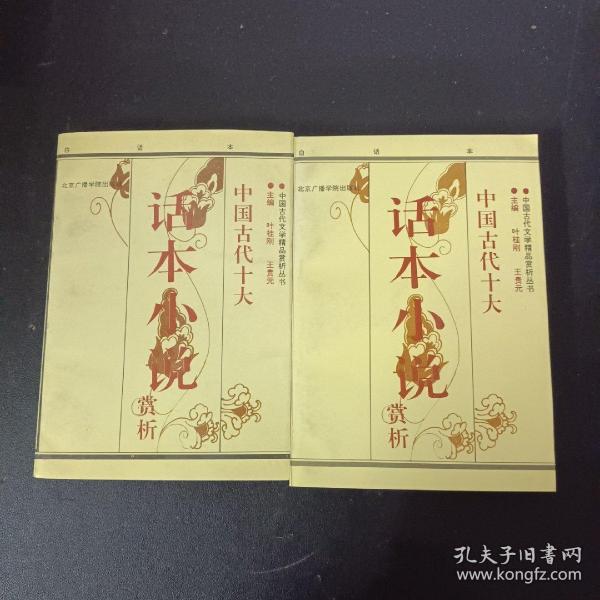 白话本
北京广播学院出版社
●中国古代文学精品赏析丛书
●主编 叶桂刚 王贵元
中国古代十大
话本小说
赏析
白话本
北京广播学院出版社
●中国古代文学精品赏析丛书
●主编 叶桂刚 王贵元
中国古代十大
话本小说
赏析
孔夫子旧书网
www.kongfz.com